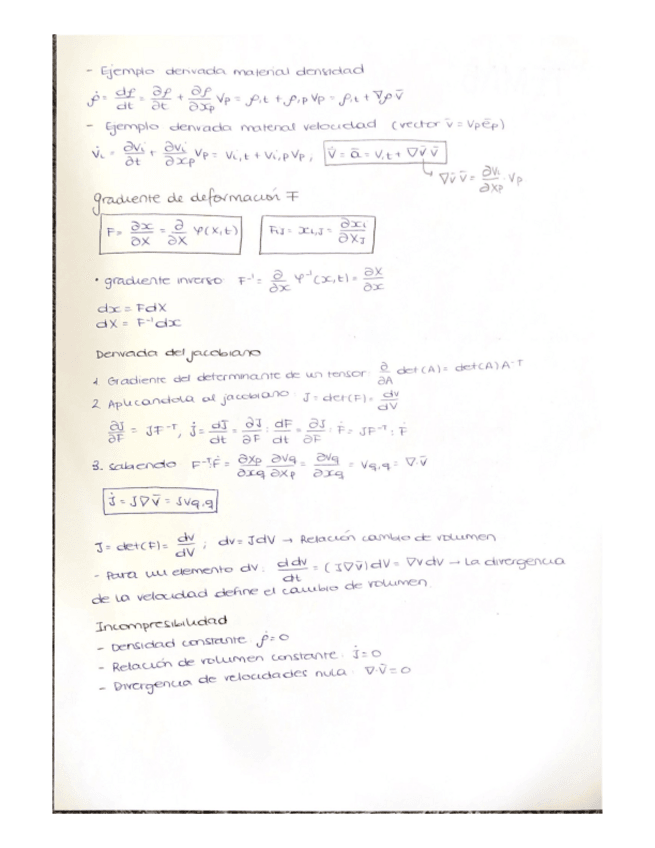 - Ejemplo derivada material densidad
ρ̇ = dρ/dt = ∂ρ/∂t + ∂ρ/∂xp Vp = ρ,t + ρ,p Vp = ρ,t + ∇ρ v̄
- Ejemplo derivada material velocidad (vector v̄ = Vp ēp)
V̇i = ∂Vi/∂t + ∂Vi/∂xp Vp = Vi,t + Vi,p Vp ; V̇ = ā = V,t + ∇v̄ v̄
∇v̄ v̄ = ∂Vi/∂xp · Vp
gradiente de deformación F
F = ∂x/∂X = ∂/∂X φ(X,t) FiJ = xi,J = ∂xi/∂XJ
· gradiente inverso: F⁻¹ = ∂/∂x φ⁻¹(x,t) = ∂X/∂x
dx = FdX
dX = F⁻¹dx
Derivada del jacobiano
1. Gradiente del determinante de un tensor: ∂/∂A det(A) = det(A) A⁻ᵀ
2. Aplicandola al jacobiano: J = det(F) = dv/dV
∂J/∂F = JF⁻ᵀ, J̇ = dJ/dt = ∂J/∂F : dF/dt = ∂J/∂F : Ḟ = JF⁻ᵀ : Ḟ
3. sabiendo F⁻ᵀ:Ḟ = ∂Xp/∂xq ∂Vq/∂Xp = ∂Vq/∂xq = Vq,q = ∇·v̄
J̇ = J∇v̄ = JVq,q
J = det(F) = dv/dV ; dv = JdV → Relación cambio de volumen
- Para un elemento dV: d dv/dt = (J∇v̄)dV = ∇v dv → La divergencia
de la velocidad define el cambio de volumen
Incompresibilidad
- Densidad constante: ρ̇ = 0
- Relación de volumen constante: J̇ = 0
- Divergencia de velocidades nula: ∇·v̄ = 0